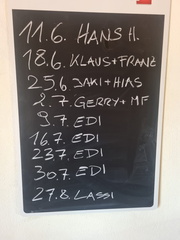 11.6. HANS H.
18.6. KLAUS+FRANZ
25.6 JAKI+HIAS
2.7. GERRY+MF
9.7. EDI
16.7. EDI
23.7. EDI
30.7. EDI
27.8. LASSI